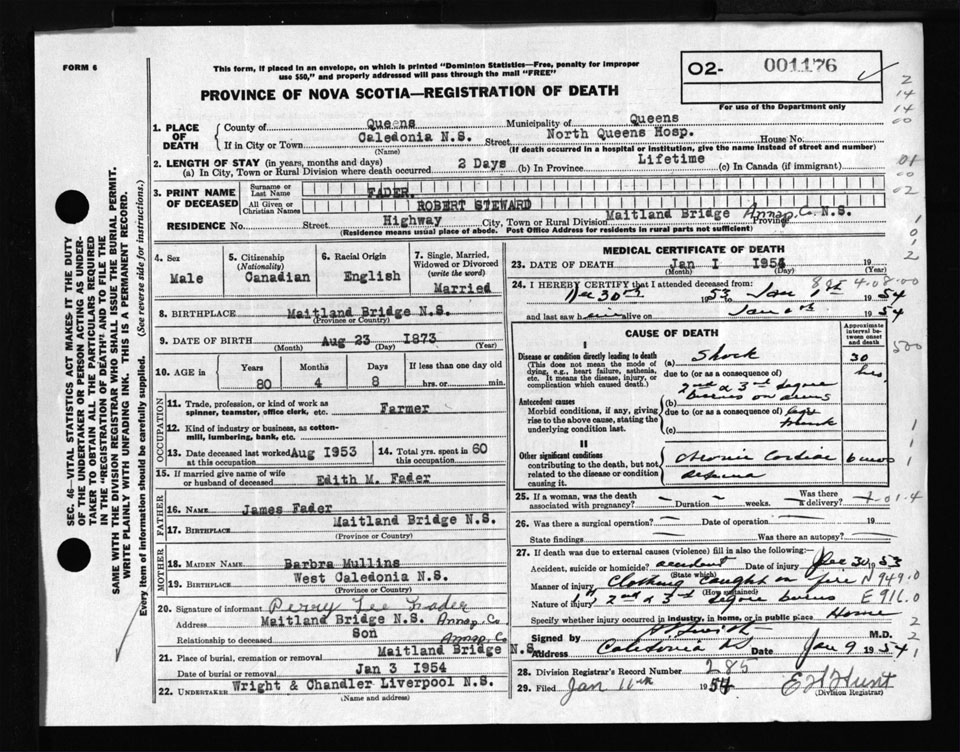 FORM 6
This form, if placed in an envelope, on which is printed "Dominion Statistics—Free, penalty for improper
use $50," and properly addressed will pass through the mail "FREE"
O2- 001176
For use of the Department only
PROVINCE OF NOVA SCOTIA—REGISTRATION OF DEATH
SEC. 46—VITAL STATISTICS ACT MAKES IT THE DUTY
OF THE UNDERTAKER OR PERSON ACTING AS UNDER-
TAKER TO OBTAIN ALL THE PARTICULARS REQUIRED
IN THE "REGISTRATION OF DEATH" AND TO FILE THE
SAME WITH THE DIVISION REGISTRAR WHO SHALL ISSUE THE BURIAL PERMIT.
WRITE PLAINLY WITH UNFADING INK. THIS IS A PERMANENT RECORD.
Every item of information should be carefully supplied. (See reverse side for instructions.)
1. PLACE OF DEATH
County of Queens Municipality of Queens
If in City or Town Caledonia N.S. Street North Queens Hosp. House No.
(Name) (If death occurred in a hospital or institution, give the name instead of street and number)
2. LENGTH OF STAY (in years, months and days)
(a) In City, Town or Rural Division where death occurred 2 Days (b) In Province Lifetime (c) In Canada (if immigrant)
3. PRINT NAME OF DECEASED
Surname or Last Name FADER.
All Given or Christian Names ROBERT STEWARD
RESIDENCE No. Street Highway City, Town or Rural Division Maitland Bridge Annap. Co. N.S. Province
(Residence means usual place of abode. Post Office Address for residents in rural parts not sufficient)
4. Sex Male
5. Citizenship (Nationality) Canadian
6. Racial Origin English
7. Single, Married, Widowed or Divorced (write the word) Married
8. BIRTHPLACE Maitland Bridge N.S.
(Province or Country)
9. DATE OF BIRTH Aug 23 1873
(Month) (Day) (Year)
10. AGE in Years 80 Months 4 Days 8 If less than one day old hrs. or min.
OCCUPATION
11. Trade, profession, or kind of work as
spinner, teamster, office clerk, etc. Farmer
12. Kind of industry or business, as cotton-
mill, lumbering, bank, etc.
13. Date deceased last worked at this occupation Aug 1953
14. Total yrs. spent in this occupation 60
15. If married give name of wife
or husband of deceased Edith M. Fader
FATHER
16. NAME James Fader
17. BIRTHPLACE Maitland Bridge N.S.
(Province or Country)
MOTHER
18. MAIDEN NAME Barbra Mullins
19. BIRTHPLACE West Caledonia N.S.
(Province or Country)
20. Signature of informant Perry Lee Frader
Address Maitland Bridge N.S. Annap. Co
Relationship to deceased Son Annap. Co
21. Place of burial, cremation or removal Maitland Bridge N.S.
Date of burial or removal Jan 3 1954
22. UNDERTAKER Wright & Chandler Liverpool N.S.
(Name and address)
MEDICAL CERTIFICATE OF DEATH
23. DATE OF DEATH Jan I 1954 19
(Month) (Day) (Year)
24. I HEREBY CERTIFY that I attended deceased from:
Dec 30th 1953 to Jan 1st 1954
and last saw him alive on Jan 1954
CAUSE OF DEATH
Approximate interval between onset and death
I
Disease or condition directly leading to death
(This does not mean the mode of
dying, e.g., heart failure, asthenia,
etc. It means the disease, injury, or
complication which caused death.)
(a) Shock 30 hrs.
due to (or as a consequence of)
(b) 2nd & 3rd degree burns on arms
Antecedent causes
Morbid conditions, if any, giving
rise to the above cause, stating the
underlying condition last.
due to (or as a consequence of) legs
(c) trunk
II
Other significant conditions
contributing to the death, but not
related to the disease or condition
causing it.
chronic cardiac 6 mos
25. If a woman, was the death
associated with pregnancy? — Duration — weeks. Was there a delivery?
26. Was there a surgical operation? — Date of operation — 19
State findings Was there an autopsy?
27. If death was due to external causes (violence) fill in also the following:—
Accident, suicide or homicide? accident Date of injury Dec 30 1953
(State which)
Manner of injury Clothing caught on fire N 949.0
(How sustained)
Nature of injury 1st 2nd & 3rd degree burns E 916.0
Specify whether injury occurred in industry, in home, or in public place Home
Signed by M.D.
Address Caledonia NS Date Jan 9 1954
28. Division Registrar's Record Number 285
29. Filed Jan 11th 1954 E H Hunt
(Division Registrar)